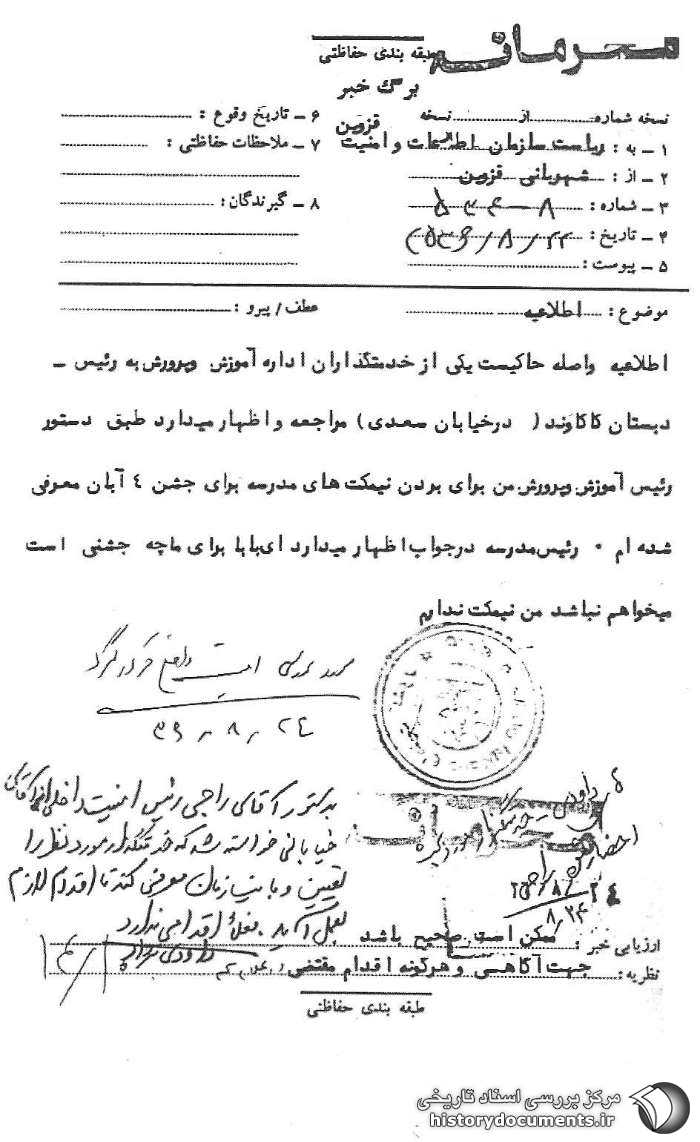 محرمانه
طبقه بندی حفاظتی
برگ خبر
نسخه شماره: از نسخه
۱ – به : ریاست سازمان اطلاعات و امنیت قزوین
۲ – از : شهربانی قزوین
۳ – شماره : ۸ – ۵۳۴
۴ – تاریخ :
۵ – پیوست :
۶ – تاریخ وقوع :
۷ – ملاحظات حفاظتی :
۸ – گیرندگان :
موضوع : اطلاعیه
عطف / پیرو :
اطلاعیه واصله حاکیست یکی از خدمتگذاران اداره آموزش وپرورش به رئیس –
دبستان کاکاوند ( درخیابان سعدی ) مراجعه و اظهار میدارد طبق دستور
رئیس آموزش وپرورش من برای بردن نیمکت های مدرسه برای جشن ٤ آبان معرفی
شده ام ٠ رئیس مدرسه درجواب اظهار میدارد ای بابا برای ماچه جشنی است
میخواهم نباشد من نیمکت ندارم
۲۴ ر ۸ ر ۳۶
بدستور آقای راجی رئیس امنیت داخلی از آقای
خیابانی خواسته شد که خدمتگذار مورد نظر را
تعیین و با سازمان معرفی کند تا اقدام لازم
بعمل آید . فعلا اقدامی ندارد
احضار
۸/۲۴
ارزیابی خبر : ممکن است صحیح باشد
نظریه : جهت آگاهی و هرگونه اقدام مقتضی
طبقه بندی حفاظتی
مرکز بررسی اسناد تاریخی
historydocuments.ir